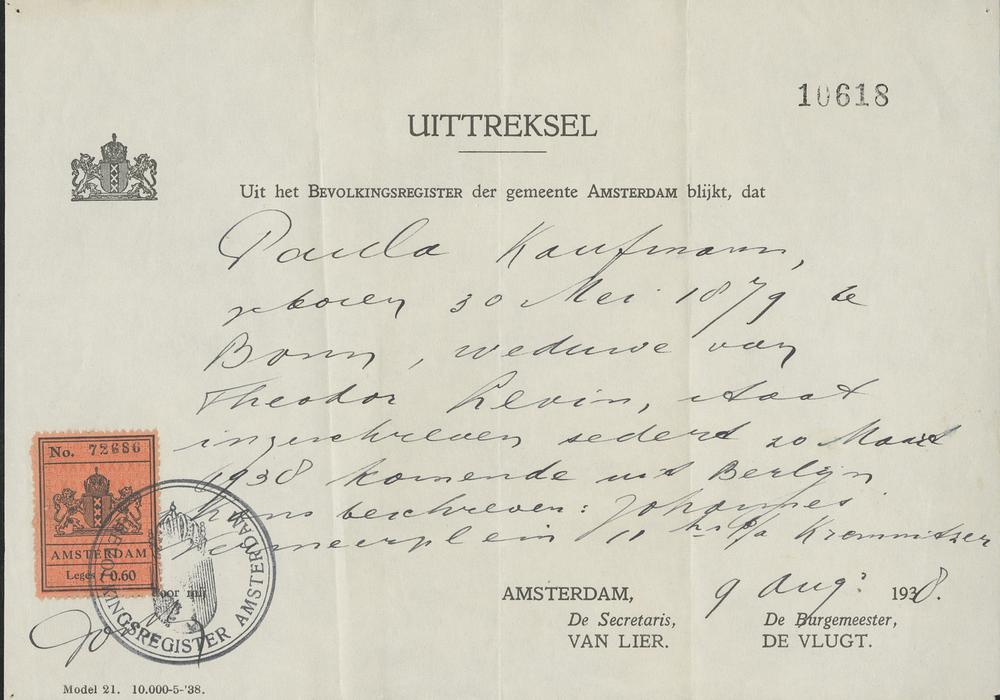 10618
UITTREKSEL
Uit het BEVOLKINGSREGISTER der gemeente AMSTERDAM blijkt, dat
Paula Kaufmann,
geboren 30 Mei 1879 te
Bonn, weduwe van
Theodor Levin, staat
ingeschreven sedert 20 Maart
1938 komende uit Berlijn
thans beschreven: Johannes
Vermeerplein 11 hs p/a Kromnitzer
No. 72686
AMSTERDAM
Leges f 0.60
Door mij
BEVOLKINGSREGISTER AMSTERDAM
AMSTERDAM, 9 Aug. 1938.
De Secretaris, De Burgemeester,
VAN LIER. DE VLUGT.
Model 21. 10.000-5-'38.